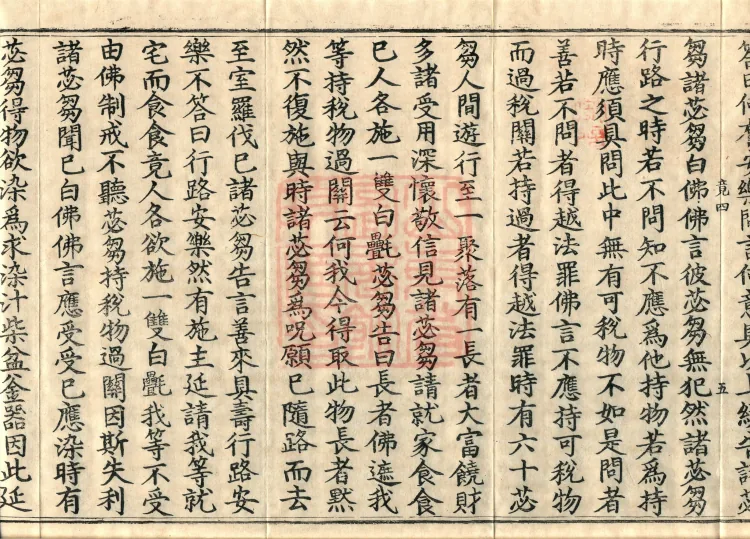 竟四
五
芻諸苾芻白佛佛言彼苾芻無犯然諸苾芻
行路之時若不問知不應爲他持物若爲持
時應須具問此中無有可稅物不如是問者
善若不問者得越法罪佛言不應持可稅物
而過稅關若持過者得越法罪時有六十苾
芻人間遊行至一聚落有一長者大富饒財
多諸受用深懷敬信見諸苾芻請就家食食
已人各施一雙白㲲苾芻告曰長者佛遮我
等持稅物過關云何我今得取此物長者默
然不復施與時諸苾芻爲呪願已隨路而去
至室羅伐已諸苾芻告言善來具壽行路安
樂不答曰行路安樂然有施主延請我等就
宅而食食竟人各欲施一雙白㲲我等不受
由佛制戒不聽苾芻持稅物過關因斯失利
諸苾芻聞已白佛佛言應受受已應染時有
苾芻得物欲染爲求染計柴盆釜器因此延